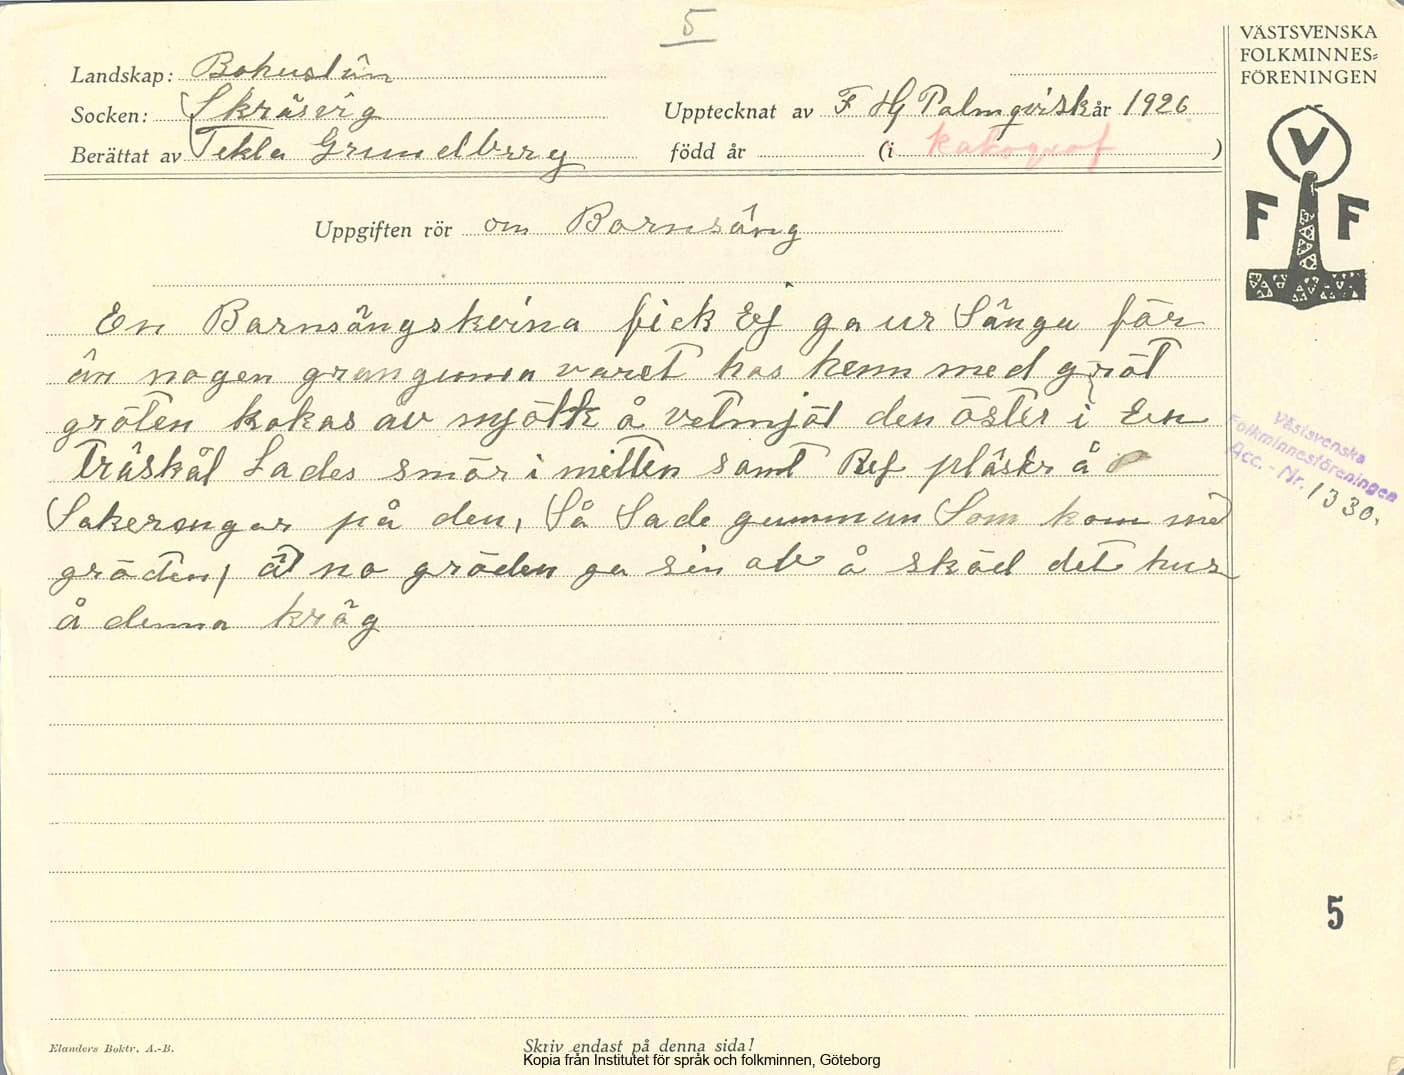 5
VÄSTSVENSKA
FOLKMINNES-
FÖRENINGEN
Landskap: Bohuslän
Socken: Skräsvig
Upptecknat av F Hj Palmqvist år 1926
Berättat av Tekla Grundelberg
född år (i )
V
F F
Uppgiften rör om Barnsäng
En Barnsängskvina fick Ej ga ur Sänga för
än nogen grangumma varet hos henn med gröt
gröten kokas av mjölk å vetmjöl den öster i En
träskål Lades smör i mitten samt Ref pläskr å
Sakerongar på den, Så Sade gumman Som kom me
gröden, ät no gröden ga sin ab å skäl det hus
å denna kräg
Västsvenska
Folkminnesföreningen
Acc. - Nr. 1330.
5
Elanders Boktr. A.-B.
Skriv endast på denna sida!
Kopia från Institutet för språk och folkminnen, Göteborg